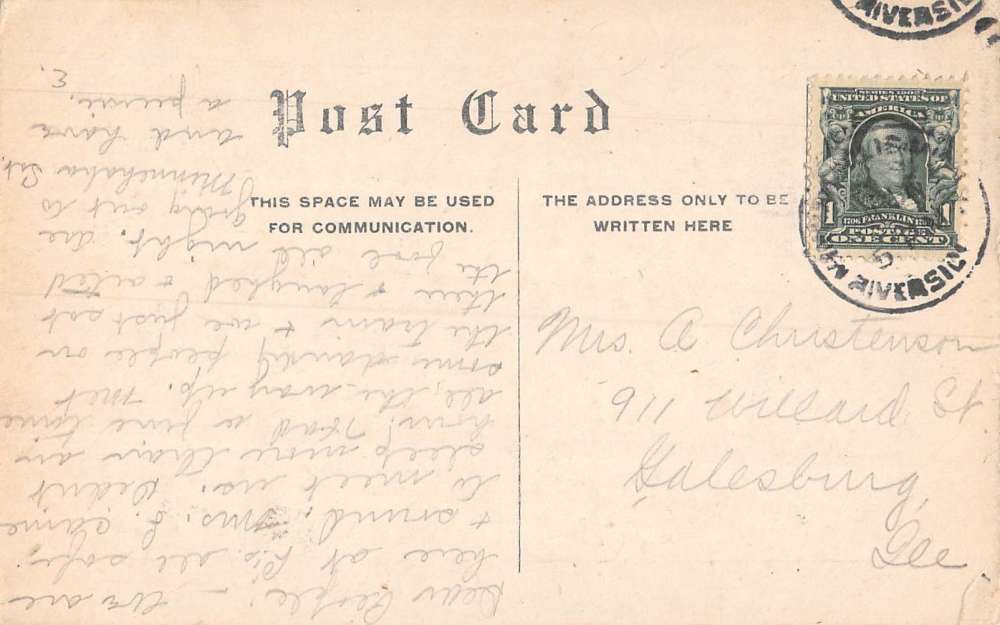 RIVERSID
Post Card
SERIES 1902
UNITED STATES OF
AMERICA
1 1706 FRANKLIN 1790 1
POSTAGE
ONE CENT
RIVERSID
THIS SPACE MAY BE USED
FOR COMMUNICATION.
THE ADDRESS ONLY TO BE
WRITTEN HERE
Mrs. A Christenson
911 Willard St
Galesburg,
Ill
Dear People; – We are
here at all safe
+ sound. Mrs. L. came
to meet us. Didn't
sleep more than an
hour. Had a fine time
all the way up. Met
some dandy people on
the train + we just sat
there + laughed + acted
the fool all night. Are
going out to
Minnehaha
and have
a picnic.
E.